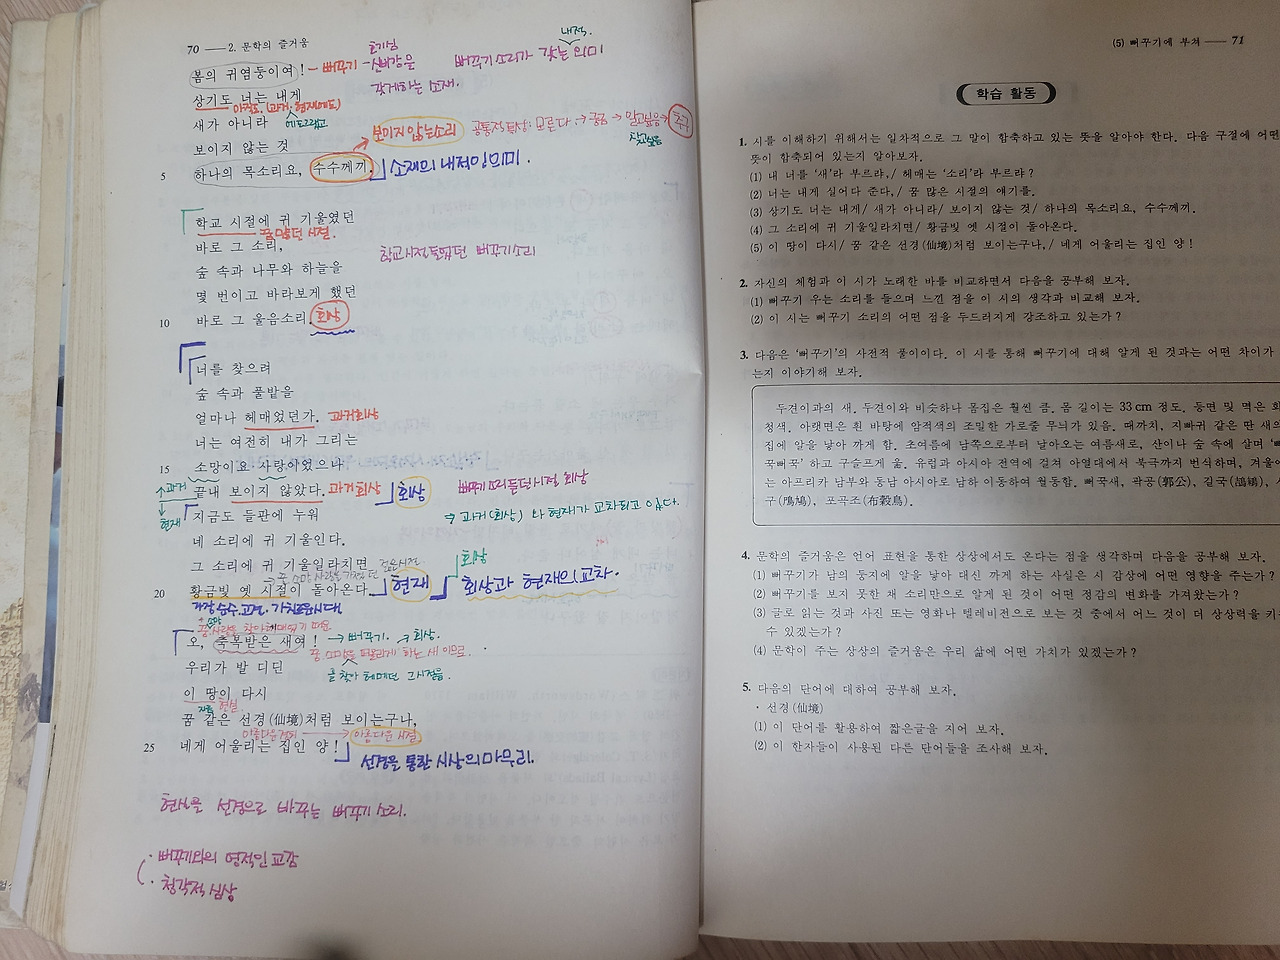 70 — 2. 문학의 즐거움
봄의 귀염둥이여! — 뻐꾸기 — 호기심 신비감을 갖게하는 소재.
뻐꾸기 소리가 갖는 의미
내적.
상기도 너는 내게
아직도. (과거·현재에도)
새가 아니라
보이지 않는 것 보이지 않는 소리
공통적 특성: 모른다 → 궁금 → 알고싶음 → 추구
찾고싶음
5 하나의 목소리요, 수수께끼. 소재의 내적인 의미.
학교 시절에 귀 기울였던
꿈 많던 시절.
바로 그 소리,
학교시절 들었던 뻐꾸기소리
숲 속과 나무와 하늘을
몇 번이고 바라보게 했던
10 바로 그 울음소리. 회상
너를 찾으려
숲 속과 풀밭을
얼마나 헤매었던가. 과거회상
너는 여전히 내가 그리는
15 소망이요 사랑이었으나
끝내 보이지 않았다. 과거회상 회상
뻐꾸기 소리 듣던 시절 회상
⇒ 과거(회상) 와 현재가 교차되고 있다.
↑과거
↓현재
지금도 들판에 누워
네 소리에 귀 기울인다.
그 소리에 귀 기울일라치면 젊은시절
20 황금빛 옛 시절이 돌아온다. 현재
회상
회상과 현재의 교차.
오, 축복받은 새여! → 뻐꾸기. → 회상.
꿈. 소망을 떠올리게 하는 새 이므로.
를 찾아 헤메던 그시절을.
우리가 발 디딘
이 땅이 다시
지금 현실
꿈 같은 선경(仙境)처럼 보이는구나,
아름다운 시절
25 네게 어울리는 집인 양!
선경을 통한 시상의 마무리.
현실을 선경으로 바꾸는 뻐꾸기 소리.
· 뻐꾸기와의 영적인 교감
· 청각적 심상
(5) 뻐꾸기에 부쳐 — 71
학습 활동
1. 시를 이해하기 위해서는 일차적으로 그 말이 함축하고 있는 뜻을 알아야 한다. 다음 구절에 어떤
뜻이 함축되어 있는지 알아보자.
(1) 내 너를 '새'라 부르랴,/ 헤매는 '소리'라 부르랴?
(2) 너는 내게 실어다 준다,/ 꿈 많은 시절의 얘기를.
(3) 상기도 너는 내게/ 새가 아니라/ 보이지 않는 것/ 하나의 목소리요, 수수께끼.
(4) 그 소리에 귀 기울일라치면/ 황금빛 옛 시절이 돌아온다.
(5) 이 땅이 다시/ 꿈 같은 선경(仙境)처럼 보이는구나,/ 네게 어울리는 집인 양!
2. 자신의 체험과 이 시가 노래한 바를 비교하면서 다음을 공부해 보자.
(1) 뻐꾸기 우는 소리를 들으며 느낀 점을 이 시의 생각과 비교해 보자.
(2) 이 시는 뻐꾸기 소리의 어떤 점을 두드러지게 강조하고 있는가?
3. 다음은 '뻐꾸기'의 사전적 풀이이다. 이 시를 통해 뻐꾸기에 대해 알게 된 것과는 어떤 차이가
는지 이야기해 보자.
두견이과의 새. 두견이와 비슷하나 몸집은 훨씬 큼. 몸 길이는 33 cm 정도. 등면 및 멱은 회
청색. 아랫면은 흰 바탕에 암적색의 조밀한 가로줄 무늬가 있음. 때까치, 지빠귀 같은 딴 새의
집에 알을 낳아 까게 함. 초여름에 남쪽으로부터 날아오는 여름새로, 산이나 숲 속에 살며 '뻐
꾹뻐꾹' 하고 구슬프게 욺. 유럽과 아시아 전역에 걸쳐 아열대에서 북극까지 번식하며, 겨울에
는 아프리카 남부와 동남 아시아로 남하 이동하여 월동함. 뻐꾹새, 곽공(郭公), 길국(鴶鵴),
구(鳲鳩), 포곡조(布穀鳥).
4. 문학의 즐거움은 언어 표현을 통한 상상에서도 온다는 점을 생각하며 다음을 공부해 보자.
(1) 뻐꾸기가 남의 둥지에 알을 낳아 대신 까게 하는 사실은 시 감상에 어떤 영향을 주는가?
(2) 뻐꾸기를 보지 못한 채 소리만으로 알게 된 것이 어떤 정감의 변화를 가져왔는가?
(3) 글로 읽는 것과 사진 또는 영화나 텔레비전으로 보는 것 중에서 어느 것이 더 상상력을 키
수 있겠는가?
(4) 문학이 주는 상상의 즐거움은 우리 삶에 어떤 가치가 있겠는가?
5. 다음의 단어에 대하여 공부해 보자.
· 선경(仙境)
(1) 이 단어를 활용하여 짧은글을 지어 보자.
(2) 이 한자들이 사용된 다른 단어들을 조사해 보자.